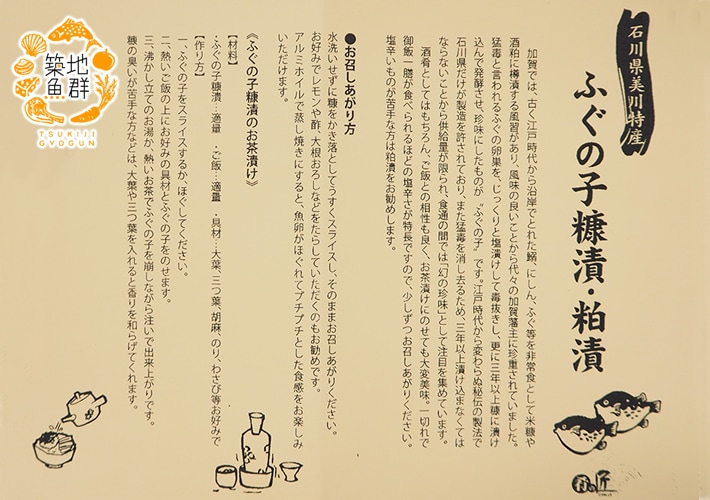 石川県美川特産
ふぐの子糠漬・粕漬
加賀では、古く江戸時代から沿岸でとれた鰯、にしん、ふぐ等を非常食として米糠や
酒粕に樽漬する風習があり、風味の良いことから代々の加賀藩主に珍重されていました。
猛毒と言われるふぐの卵巣を、じっくりと塩漬けして毒抜きし、更に三年以上糠に漬け
込んで発酵させ、珍味にしたものが〝ふぐの子〟です。江戸時代から変わらぬ秘伝の製法で
石川県だけが製造を許されており、また猛毒を消し去るため、三年以上漬け込まなくては
ならないことから供給量が限られ、食通の間では「幻の珍味」として注目を集めています。
酒肴としてはもちろん、ご飯との相性も良く、お茶漬けにのせても大変美味。一切れで
御飯一膳が食べられるほどの塩辛さが特長ですので、少しずつお召しあがりください。
塩辛いものが苦手な方は粕漬をお勧めします。
●お召しあがり方
水洗いせずに糠をかき落としてうすくスライスし、そのままお召しあがりください。
お好みでレモンや酢、大根おろしなどをたらしていただくのもお勧めです。
アルミホイルで蒸し焼きにすると、魚卵がほぐれてプチプチとした食感をお楽しみ
いただけます。
《ふぐの子糠漬のお茶漬け》
【材料】
・ふぐの子糠漬…適量 ・ご飯…適量 ・具材…大葉、三つ葉、胡麻、のり、わさび等お好みで
【作り方】
一、ふぐの子をスライスするか、ほぐしてください。
二、熱いご飯の上にお好みの具材とふぐの子をのせます。
三、沸かし立てのお湯か、熱いお茶でふぐの子を崩しながら注いで出来上がりです。
糠の臭いが苦手な方などは、大葉や三つ葉を入れると香りを和らげてくれます。
匠
築地
魚群
TSUKIJI
GYOGUN